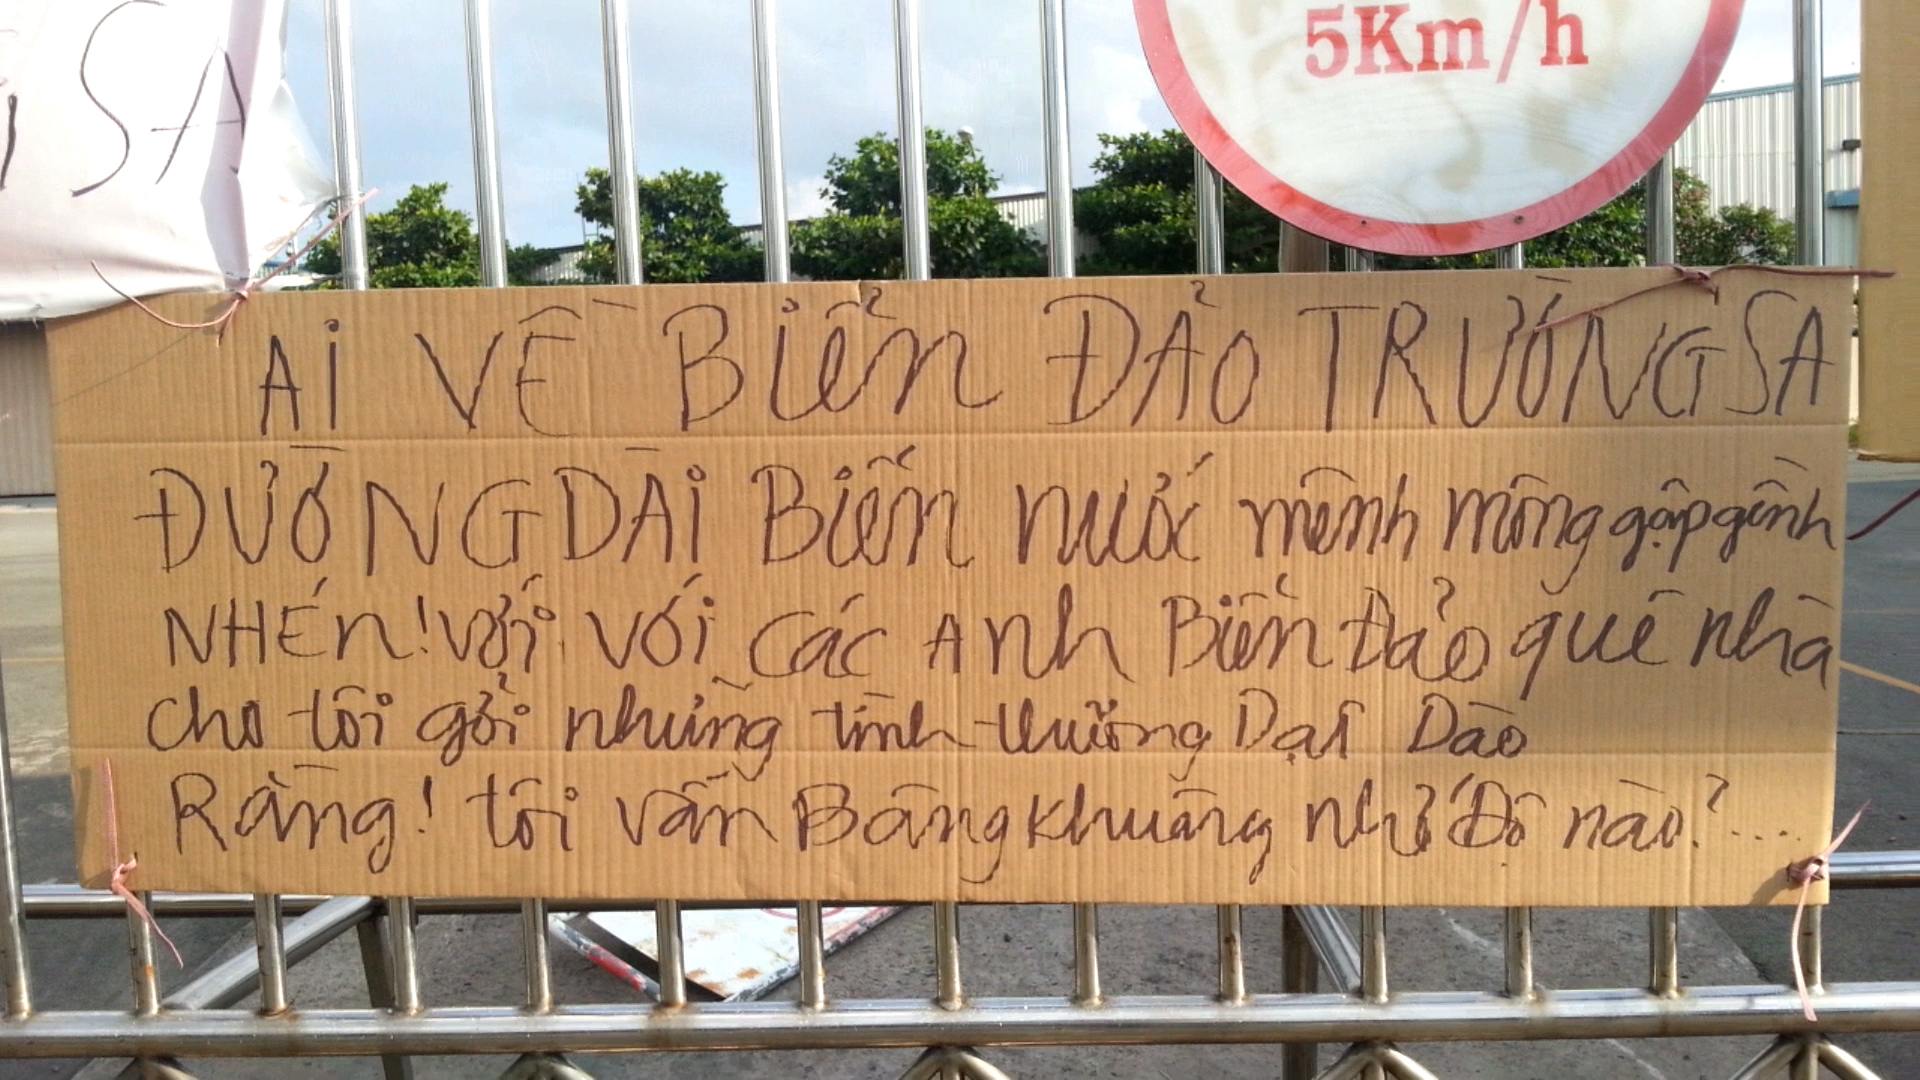 5Km/h
SA
AI VỀ BIỂN ĐẢO TRƯỜNG SA
ĐƯỜNG DÀI Biển nước mênh mông gập gềnh
NHÉN! Với với các Anh Biển Đảo quê nhà
cho tôi gởi những tình thương Dạt Dào
Rằng! tôi vẫn Bâng khuâng nhớ Độ nào?....